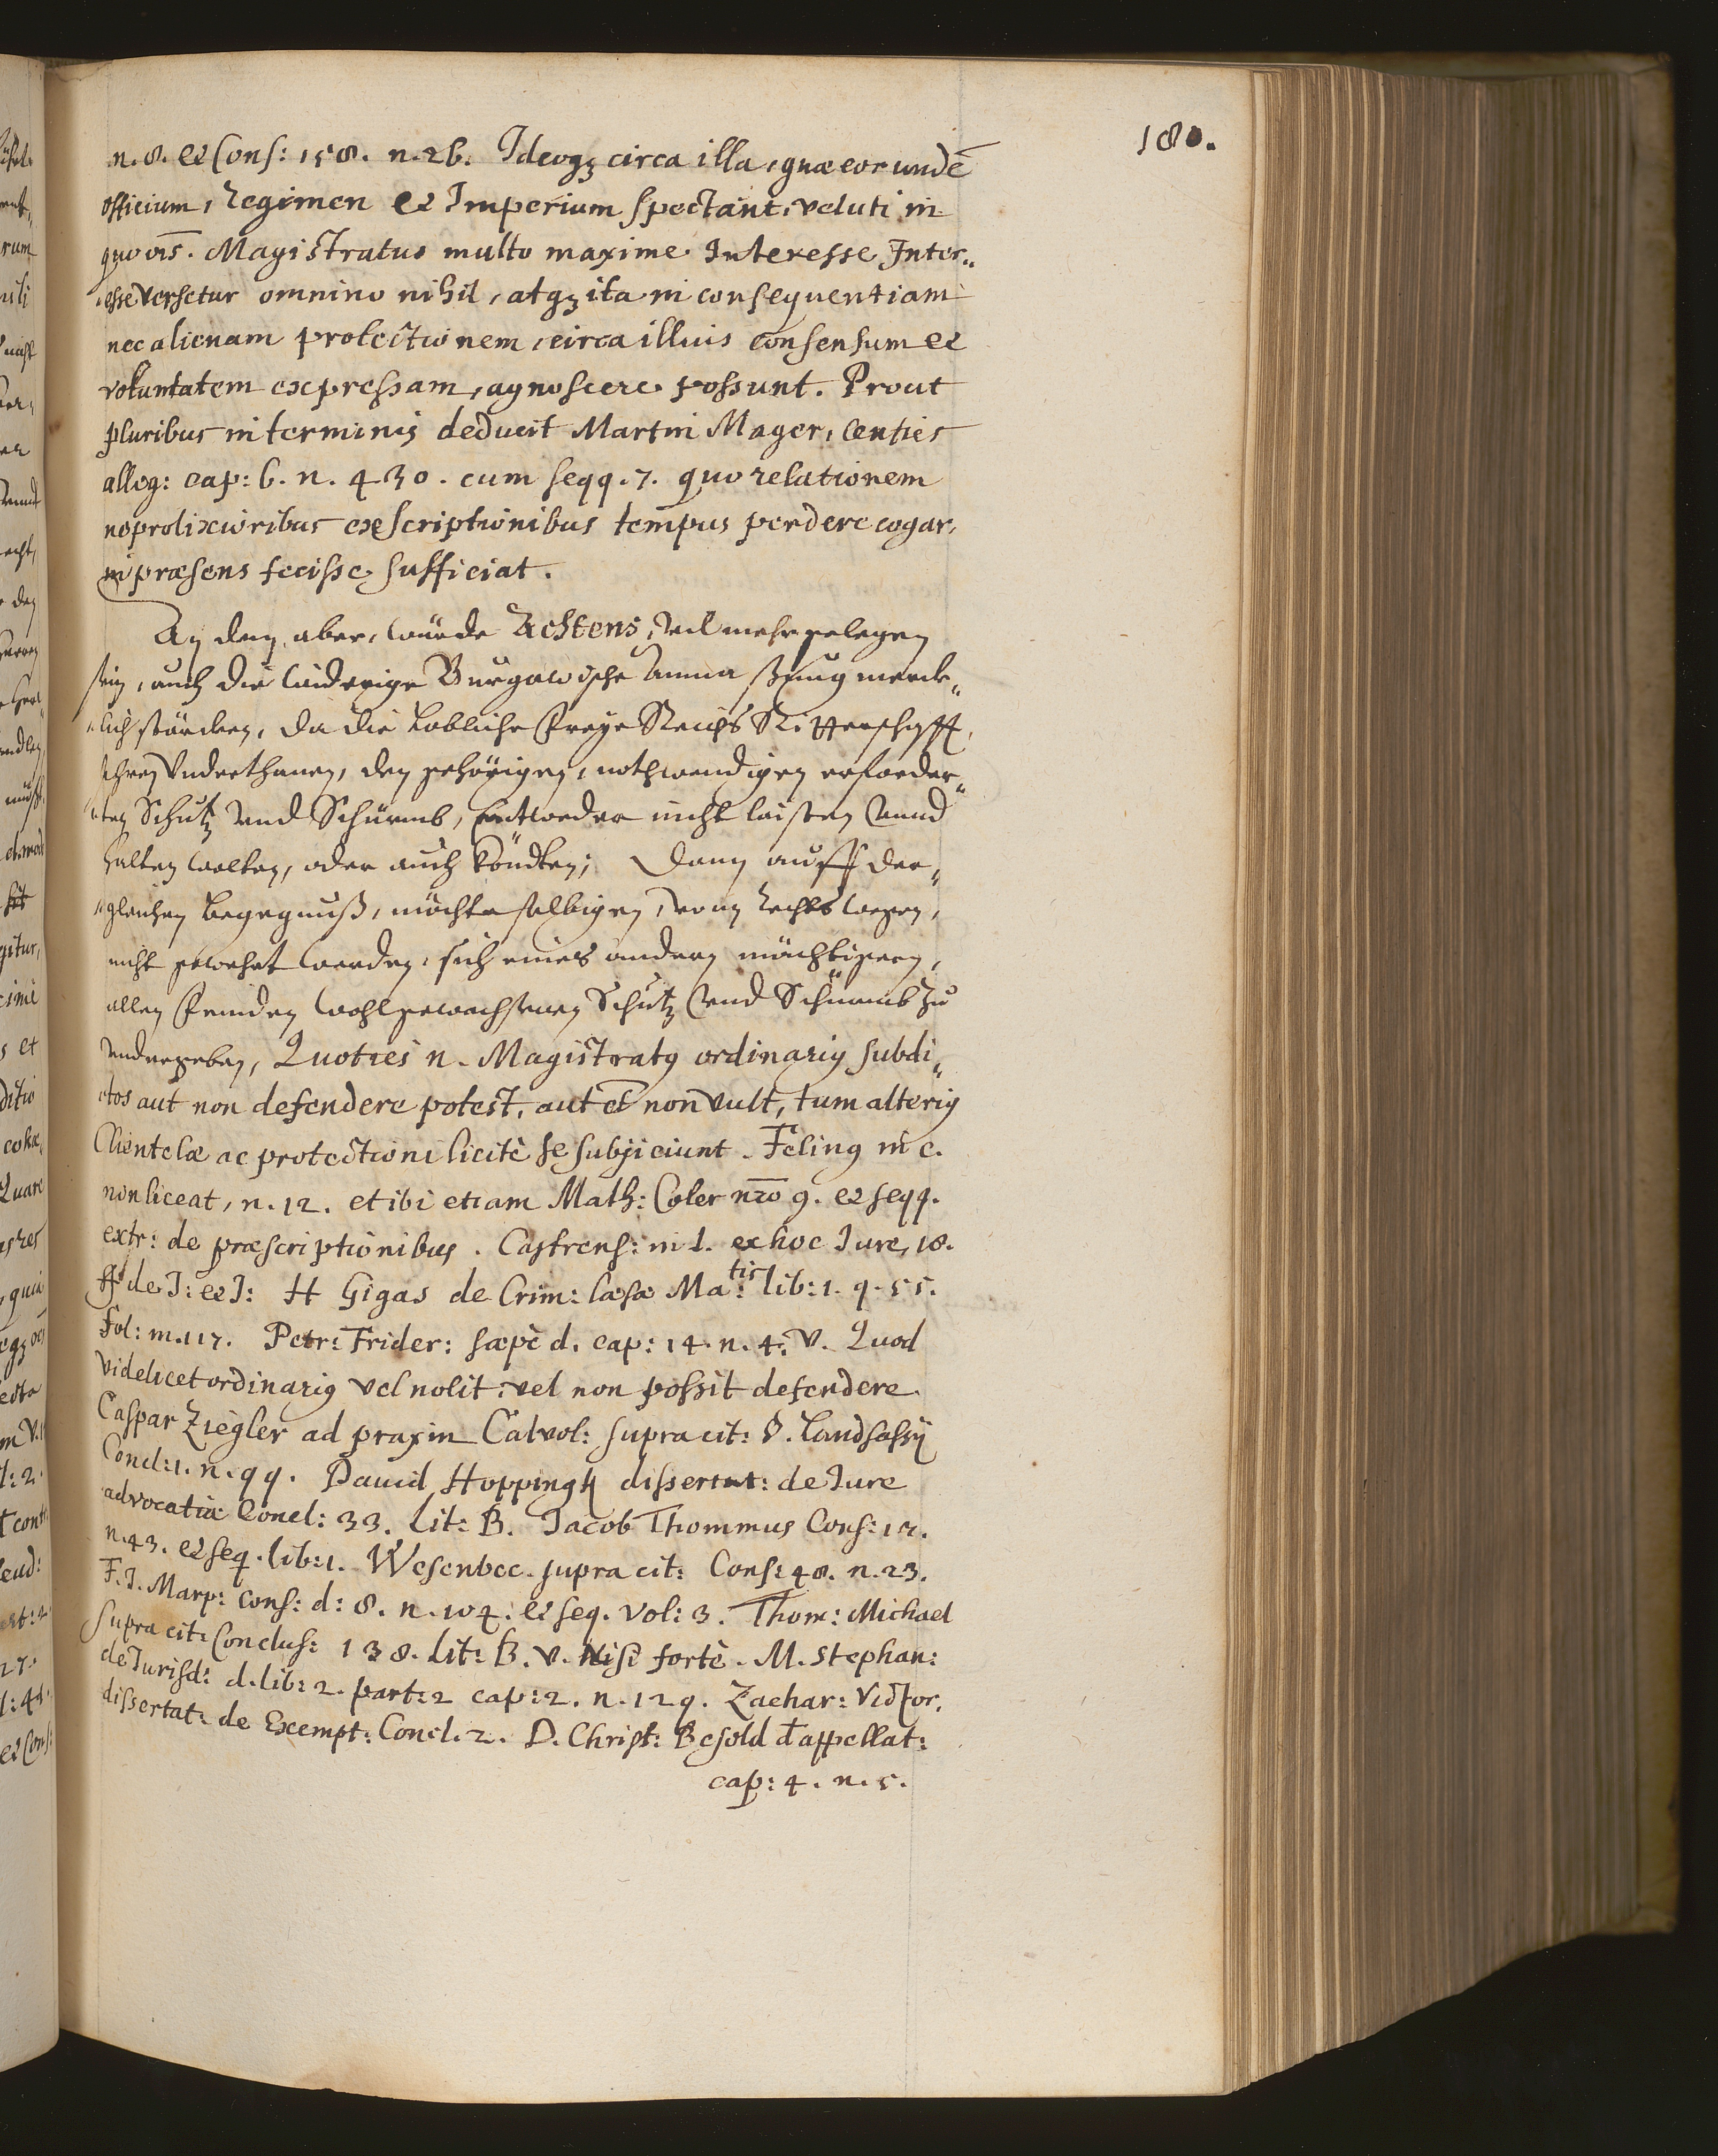 180.
n. 8. et Cons: 158. n. 26. Ideoq; circa illa, quæ eorundē
officium, Regimen et Imperium spectant, veluti in
quovis. Magistratus multo maxime Interesse Inter„
„esse versetur omnino nihil, atq; ita in consequentiam
nec alienam protectionem, circa illius consensum et
voluntatem expressam, agnoscere possunt. Prout
pluribus in terminis deducit Martin Mager, centies
alleg: cap: 6. n. 430. cum seqq. 7. quo relationem
ne prolixioribus exscriptionibus tempus perdere cogar,
in præsens fecisse sufficiat.
An dem aber, wurde Achtens, vil mehr gelegen
sein, auch die widerige Burgawische Anmassung merck„
„lich störcken, da die Lobliche Freye Reichs Ritterschafft,
Ihren Underthanen, den gehörigen, nothwendigen erforder„
„ten Schutz vnd Schürmb, Entweder nicht laisten vnnd
halten wolten, oder auch köndten; Dann auff der„
„gleichen begegnuß, möchte selbigen, von Rechts wegen,
nicht gewehrt werden, sich eines andern mächtigern,
allen Feinden wohlgewachsenen Schutz vnd Schürmb zu
vndergeben, Quoties n. Magistratq ordinariq subdi„
„tos aut non defendere potest, aut et non vult, tum alteriq
Clientelæ ac protectioni licitè se subjiciunt. Felinq in c.
non liceat, n. 12. et ibi etiam Math: Coler nro 9. et seqq.
extr: de præscriptionibus. Castrens: in l. ex hoc Jure, 18.
ff de J: et J: H Gigas de Crim: læsæ Ma:tis lib: 1. q. 55.
fol: m. 117. Petr: Frider: sæpè d. cap: 14. n. 4. v. Quod
videlicet ordinariq vel nolit, vel non possit defendere
Caspar Ziegler ad praxin Calvol: supra cit: §. Landsassij
Concl: 1. n. 99. Dauid Hoppingk dissertat: de Jure
advocatiæ Concl: 33. lit: B. Jacob Thommus Cons: 17.
n. 43. et seq. lib: 1. Wesenbec. supra cit: Cons: 48. n. 23.
F. J. Marp: Cons: d: 8. n. 104. et seq. Vol: 3. Thom: Michael
supra cit: Conclus: 138. Lit: B. v. Nisi fortè. M. Stephan:
de Jurisd: d. lib: 2. part: 2 cap: 2. n. 129. Zachar: Victor.
dissertat: de Exempt: Concl. 2. D. Christ: Besold d appellat:
cap: 4. n. 5.